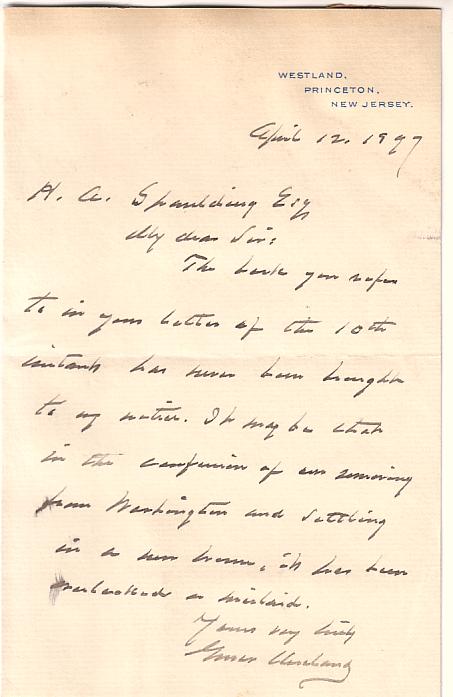 WESTLAND,
PRINCETON,
NEW JERSEY.
April 12, 1897
H. A. Spaulding Esq
My dear Sir:
The book you refer
to in your letter of the 10th
instant has never been brought
to my notice. It may be that
in the confusion of our removing
from Washington and settling
in a new home, it has been
overlooked or mislaid.
Yours very truly
Grover Cleveland